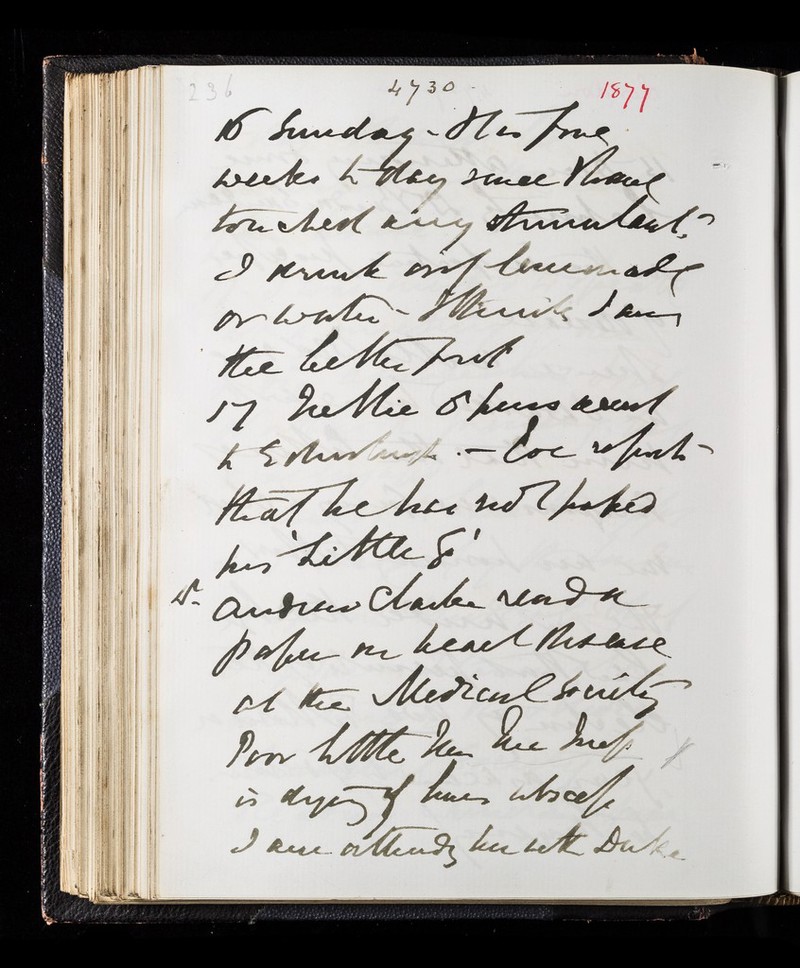 236 4730. 1877
16 Sunday - It is five
weeks to day since I have
touched any stimulant,
I drink only lemonade
or water - I think I am
the better for it
17 Nellie & went
to Edinburgh. - Coc reports
that he has not passed
his 'Little G'
18. Andrew Clarke read a
paper on heart disease
at the Medical Society
Poor little Mrs
is dying of liver abscess
I am attendg her with Duke